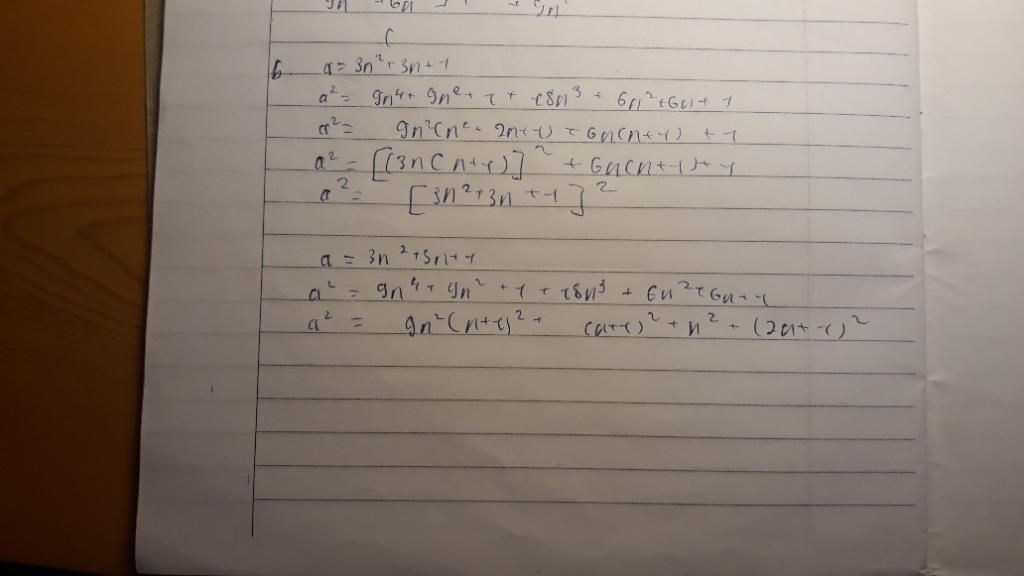 6 a = 3n² + 3n + 1
a² = 9n⁴ + 9n² + 1 + 18n³ + 6n² + 6n + 1
a² = 9n²(n² + 2n + 1) + 6n(n+1) + 1
a² = [(3n(n+1)]² + 6n(n+1) + 1
a² = [3n² + 3n + 1]²
a = 3n² + 3n + 1
a² = 9n⁴ + 9n² + 1 + 18n³ + 6n² + 6n + 1
a² = 9n²(n+1)² + (n+1)² + n² + (2n+1)²